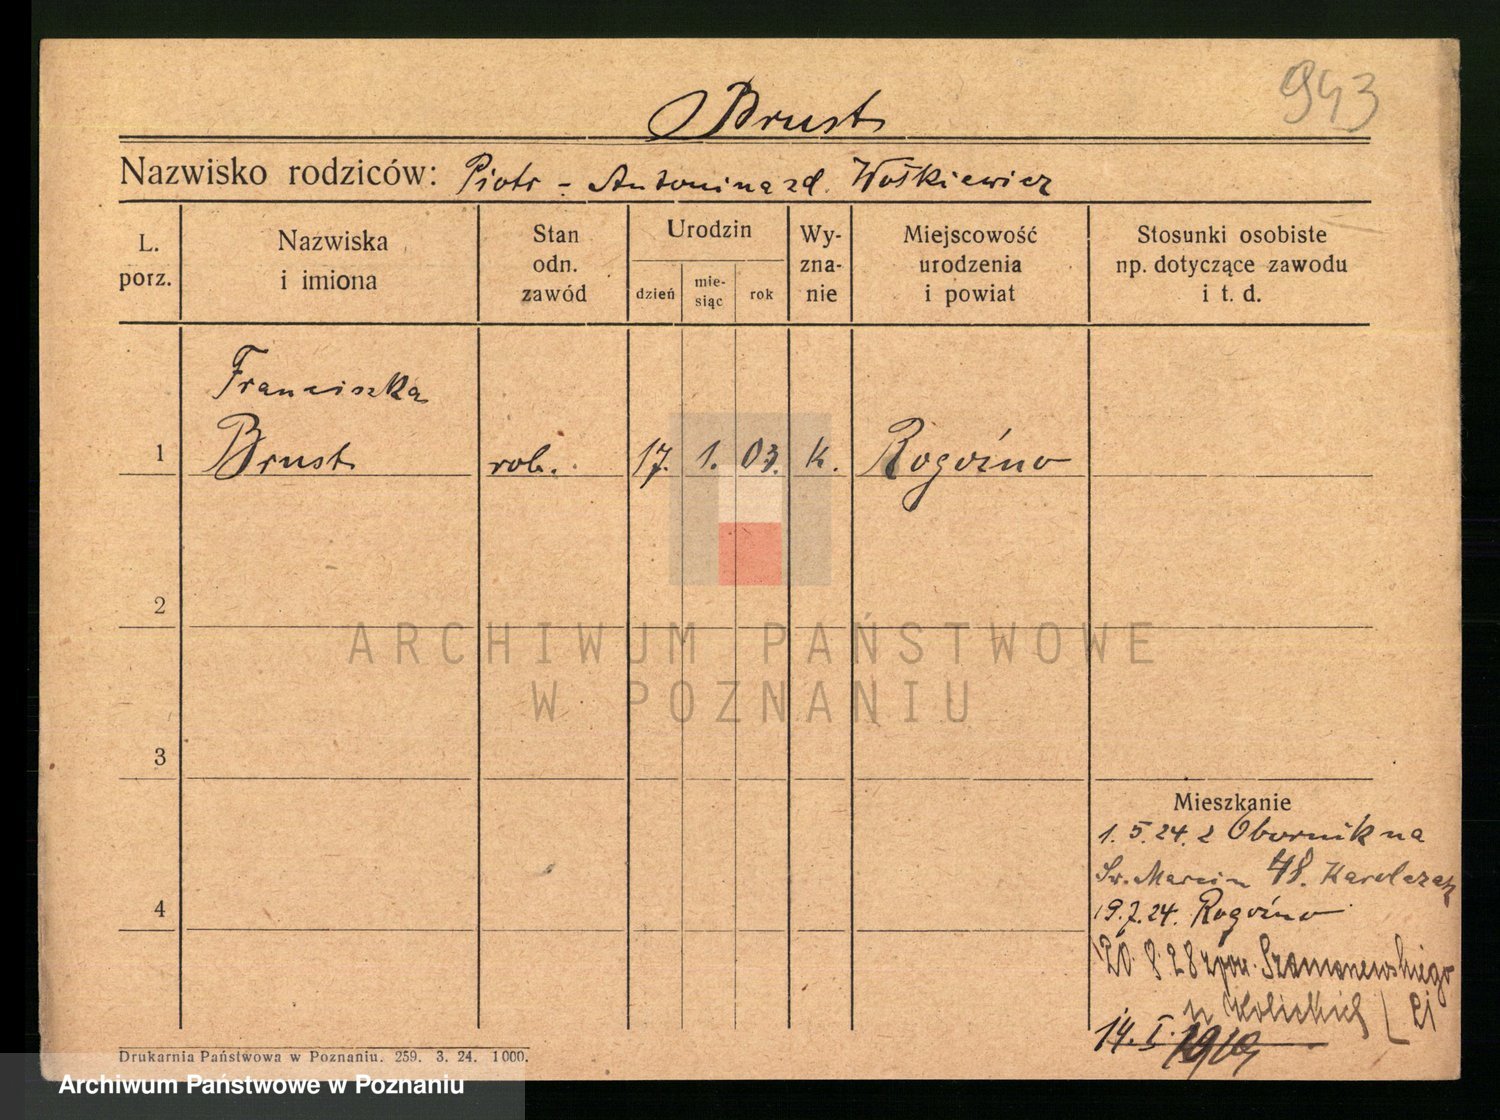 943
Brust
Nazwisko rodziców: Piotr - Antonina zd. Wośkiewicz
L. porz.
Nazwiska i imiona
Stan odn. zawód
Urodzin
dzień
mie- siąc
rok
Wy- zna- nie
Miejscowość urodzenia i powiat
Stosunki osobiste np. dotyczące zawodu i t. d.
Franciszka
1 Brust rob. 17. 1. 03. k. Rogoźno
2
3
4
Mieszkanie
1. 5. 24. z Obornik na
Św. Marcin 48. Karolczak
19.7.24. Rogoźno
20. 8. 28 z pow. Szamonewskiego
14. I. 1919
Drukarnia Państwowa w Poznaniu. 259. 3. 24. 1000.
ARCHIWUM PAŃSTWOWE
W POZNANIU
Archiwum Państwowe w Poznaniu